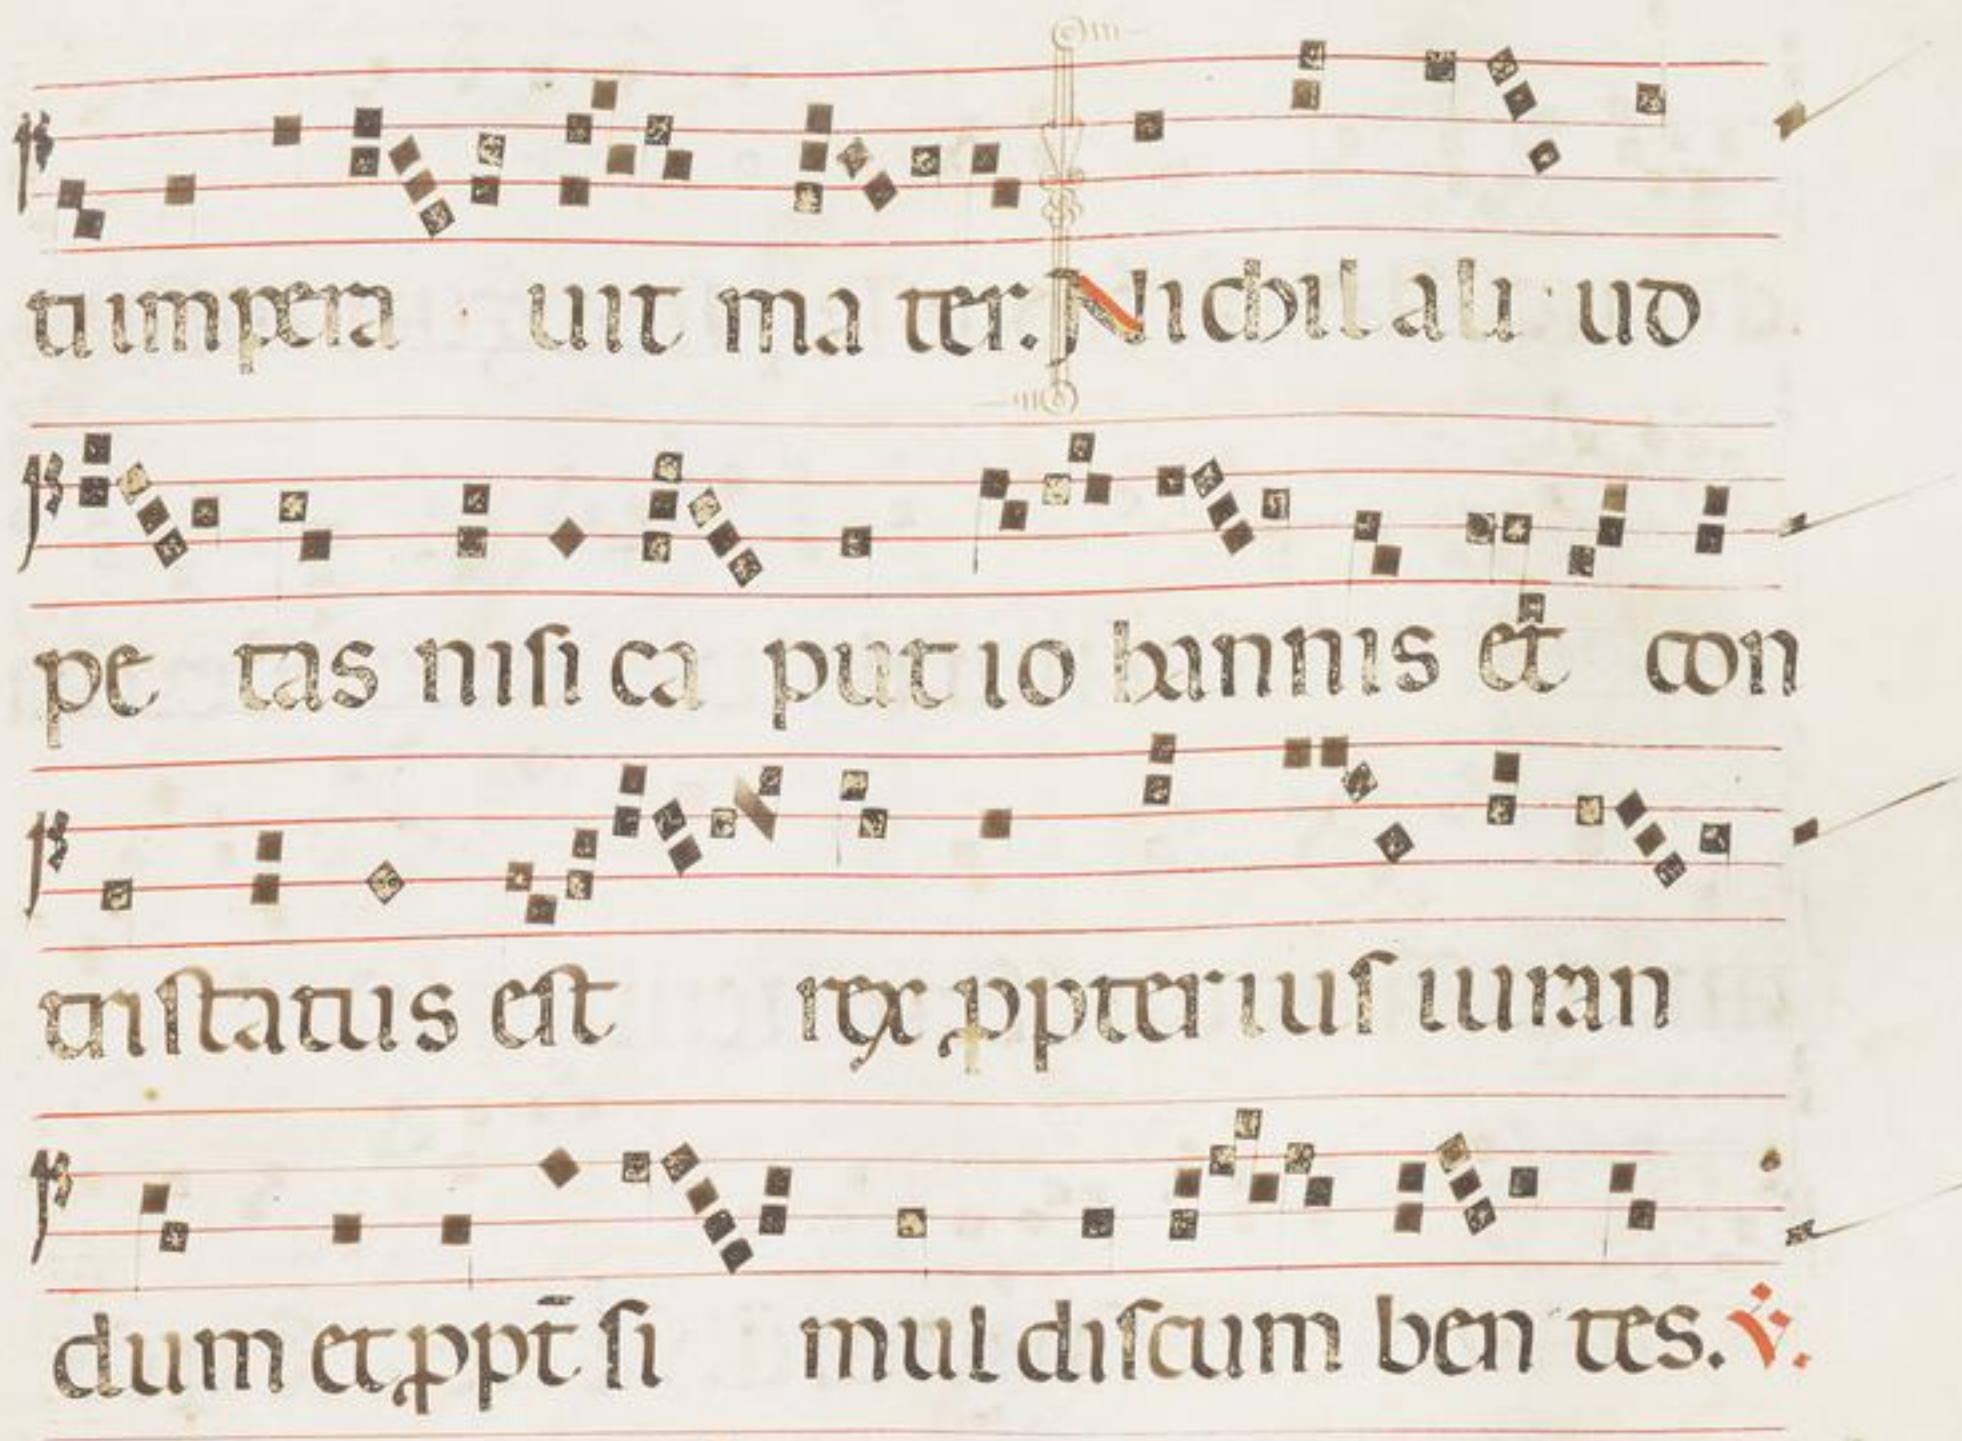 ti impera uit ma ter. Nichil ali ud
pe tas nisi ca put io hannis et con
tristatus est rex ppter ius iuran
dum et ppt̄ si mul discum ben tes. V̇.